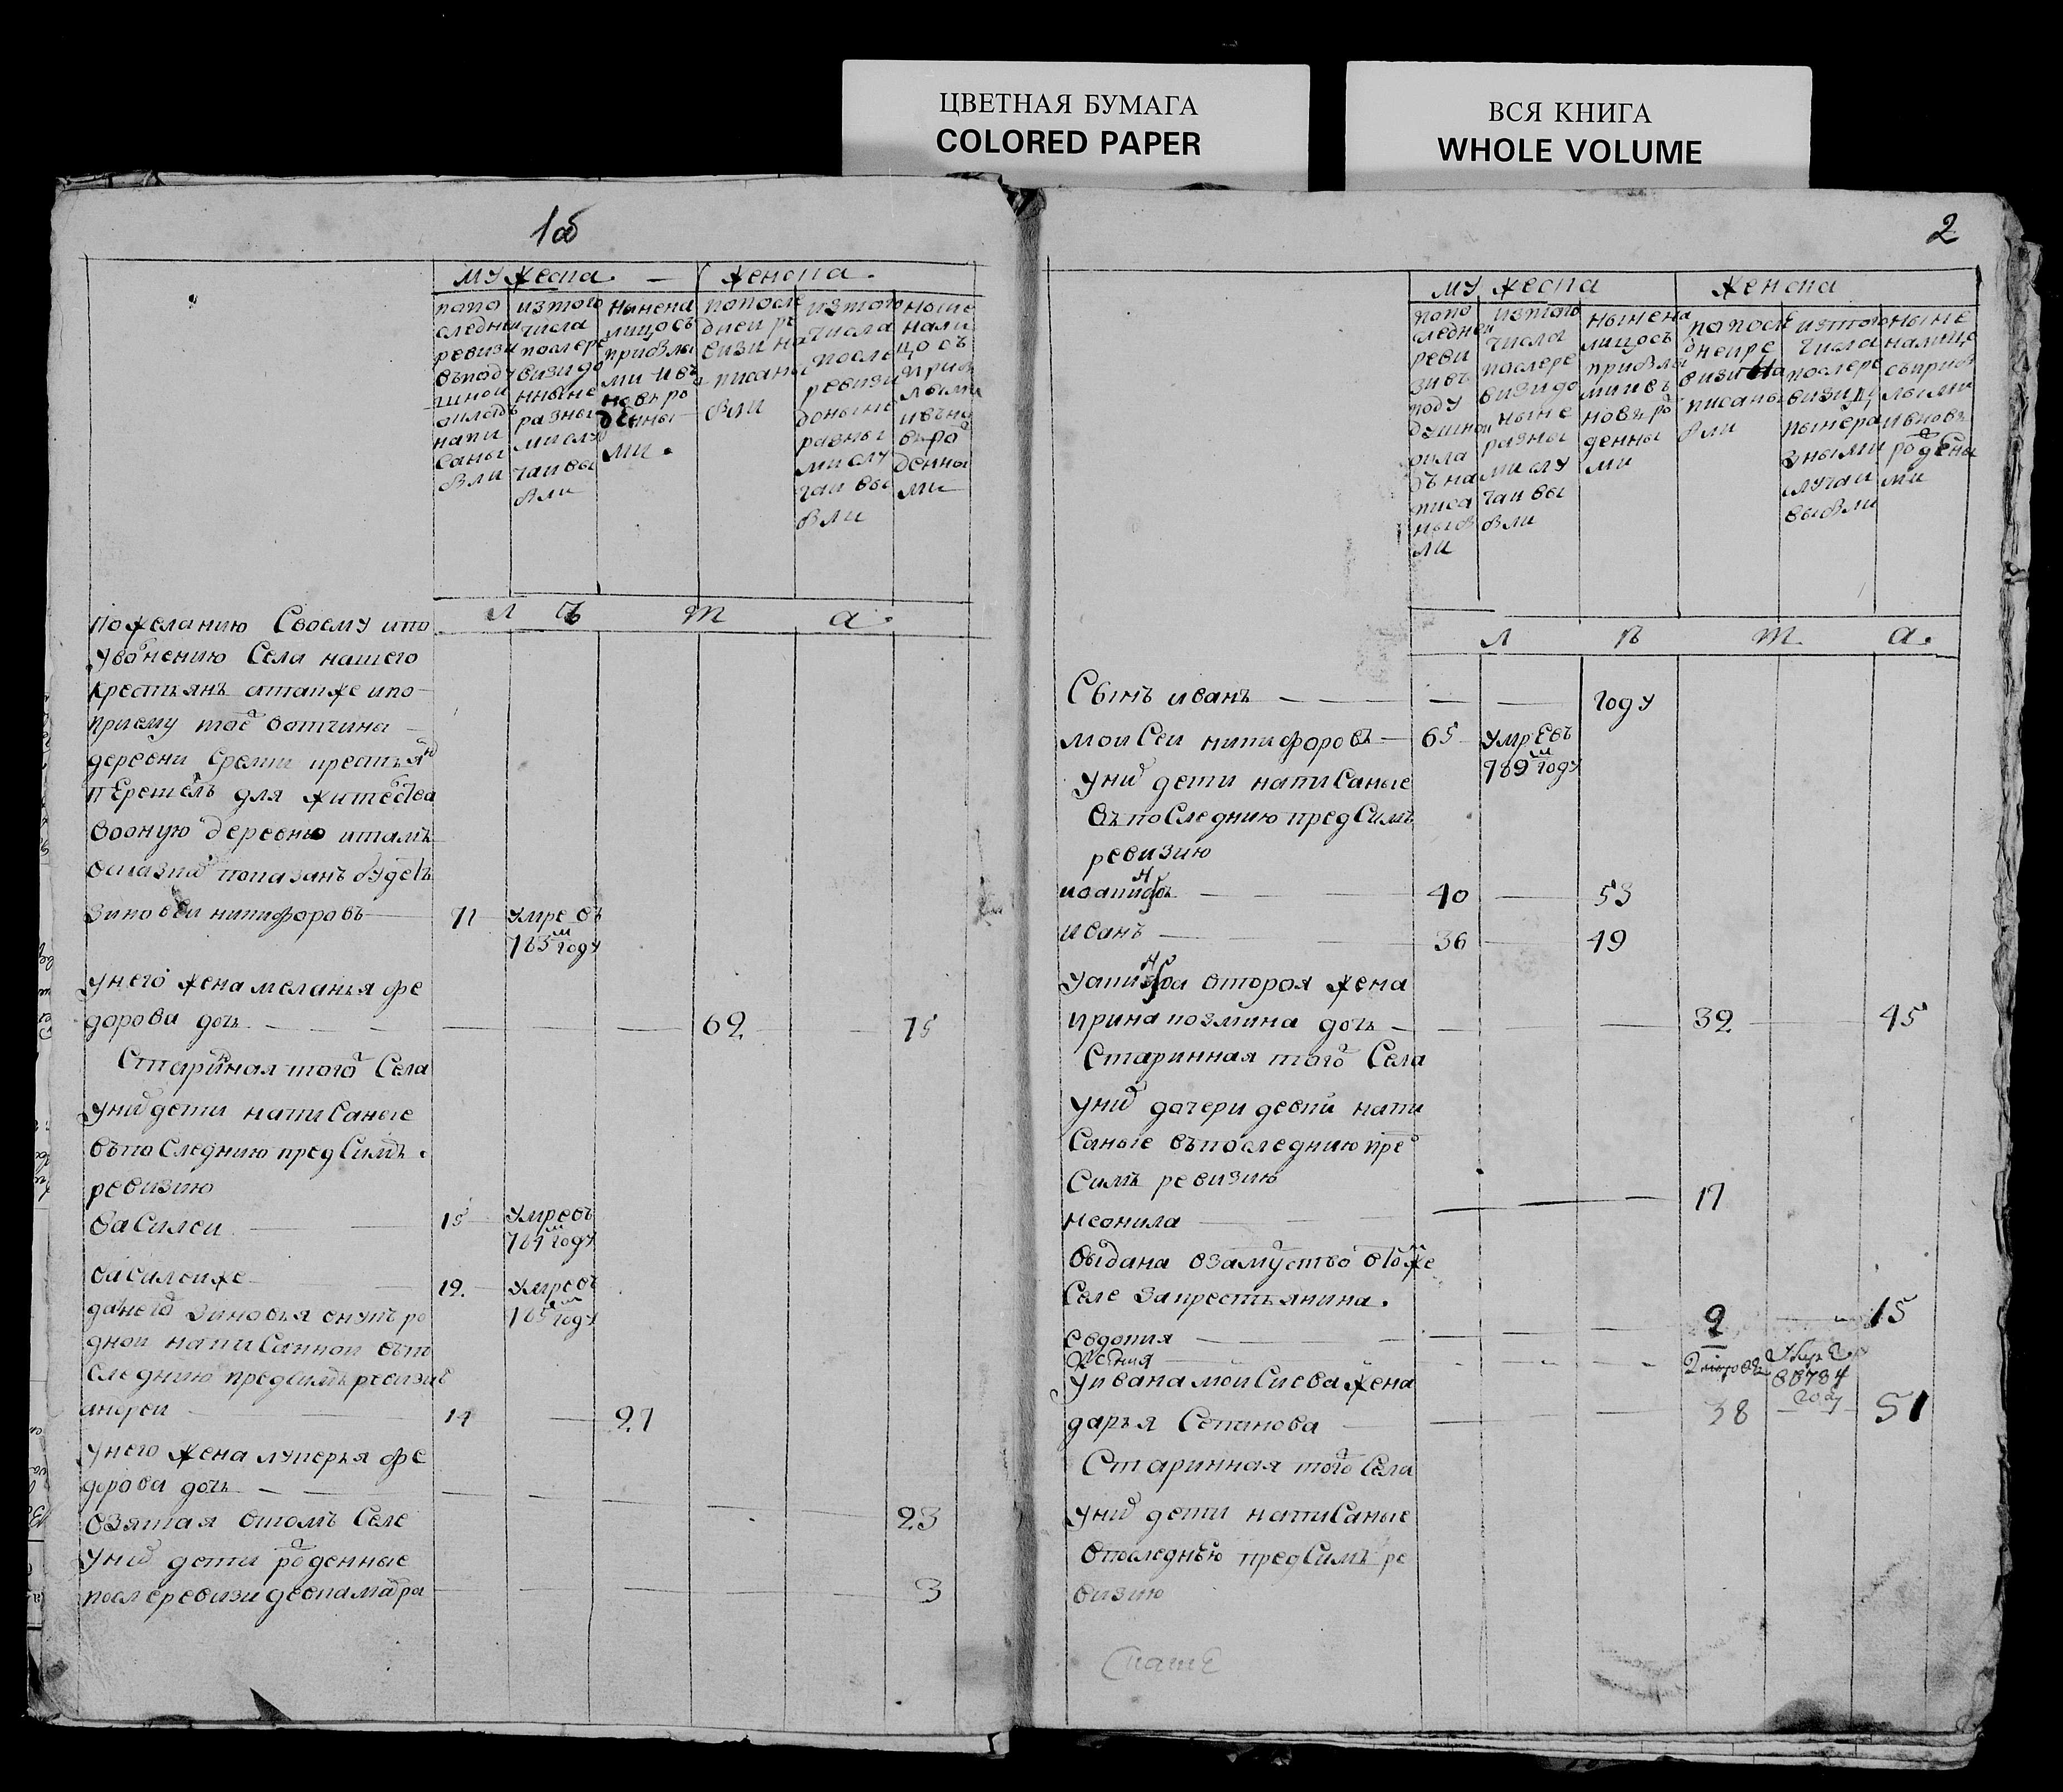 ЦВЕТНАЯ БУМАГА
COLORED PAPER
ВСЯ КНИГА
WHOLE VOLUME
1об
мужеска — женска.
по по следней ревизи въ поду шной оклад напи саны были
из того числа после ре визи до ныне разны ми слу чаи вы были
ныне на лицо съ прибылы ми и въ новь ро денны ми.
по после дней ре визи на писаны были
из того числа после ревизи до ныне разны ми слу чаи вы были
ныне на ли цо съ прибы лыми и въ но вь ро денны ми
л ѣ т а.
пожеланию Своему ипо
уволнению Села нашего
крестьянъ атакже ипо
приему тое вотчины
деревни крестьян
перешелъ для жителства
вооную деревню итамъ
показанъ будетъ
Зиновеи никифоровъ — 71 умре въ
783м году
унего жена меланья фе
дорова дочь — 62 75
Старинная того Села
уних дети написаные
въпоследнию предсимъ
ревизию
Василеи — 15 умре въ
784м году
василеиже — 12 умре въ
785м году
данего Зиновья внукъ ро
днои написаннои въпо
следнию предсимъ ревизию
андреи — 14 — 27
унего жена лукерья фе
дорова дочь —
взятая втомъ Селе 23
уних дети роденные
после ревизи девка мавра — 3
2
му жеска женска
по по следней реви зи въ поду душной окла дъ на писа ны бы ли
из того числа после ре визи до ныне разны ми слу чаи вы были
ныне на лицо съ прибылы ми и въ новь ро денны ми
по после дней ре визи на писаны были
из того числа после ре визи до ныне ра зными случаи выбыли
ныне на лицо съ прибы лыми и вновь родены ми
л ѣ т а.
Сынъ иванъ — — — году
моисеи никифоровъ — 65 умре въ
789м году
уних дети написаные
въпоследнию предсимъ
ревизию
40 — 53
иванъ — 36 — 49
вторая жена
ирина козмина дочь — 32 45
Старинная того Села
уних дочери девки напи
саные въпоследнию пред
симъ ревизию
неонила — 17
выдана взамуство втомже
Селе за крестьянина.
евдокия — 2 — 15
уивана моисиева жена
въ 784 году
дарья Степанова — 38 — 51
Старинная того Села
уних дети написаные
впоследнъю предсимъ ре
визию